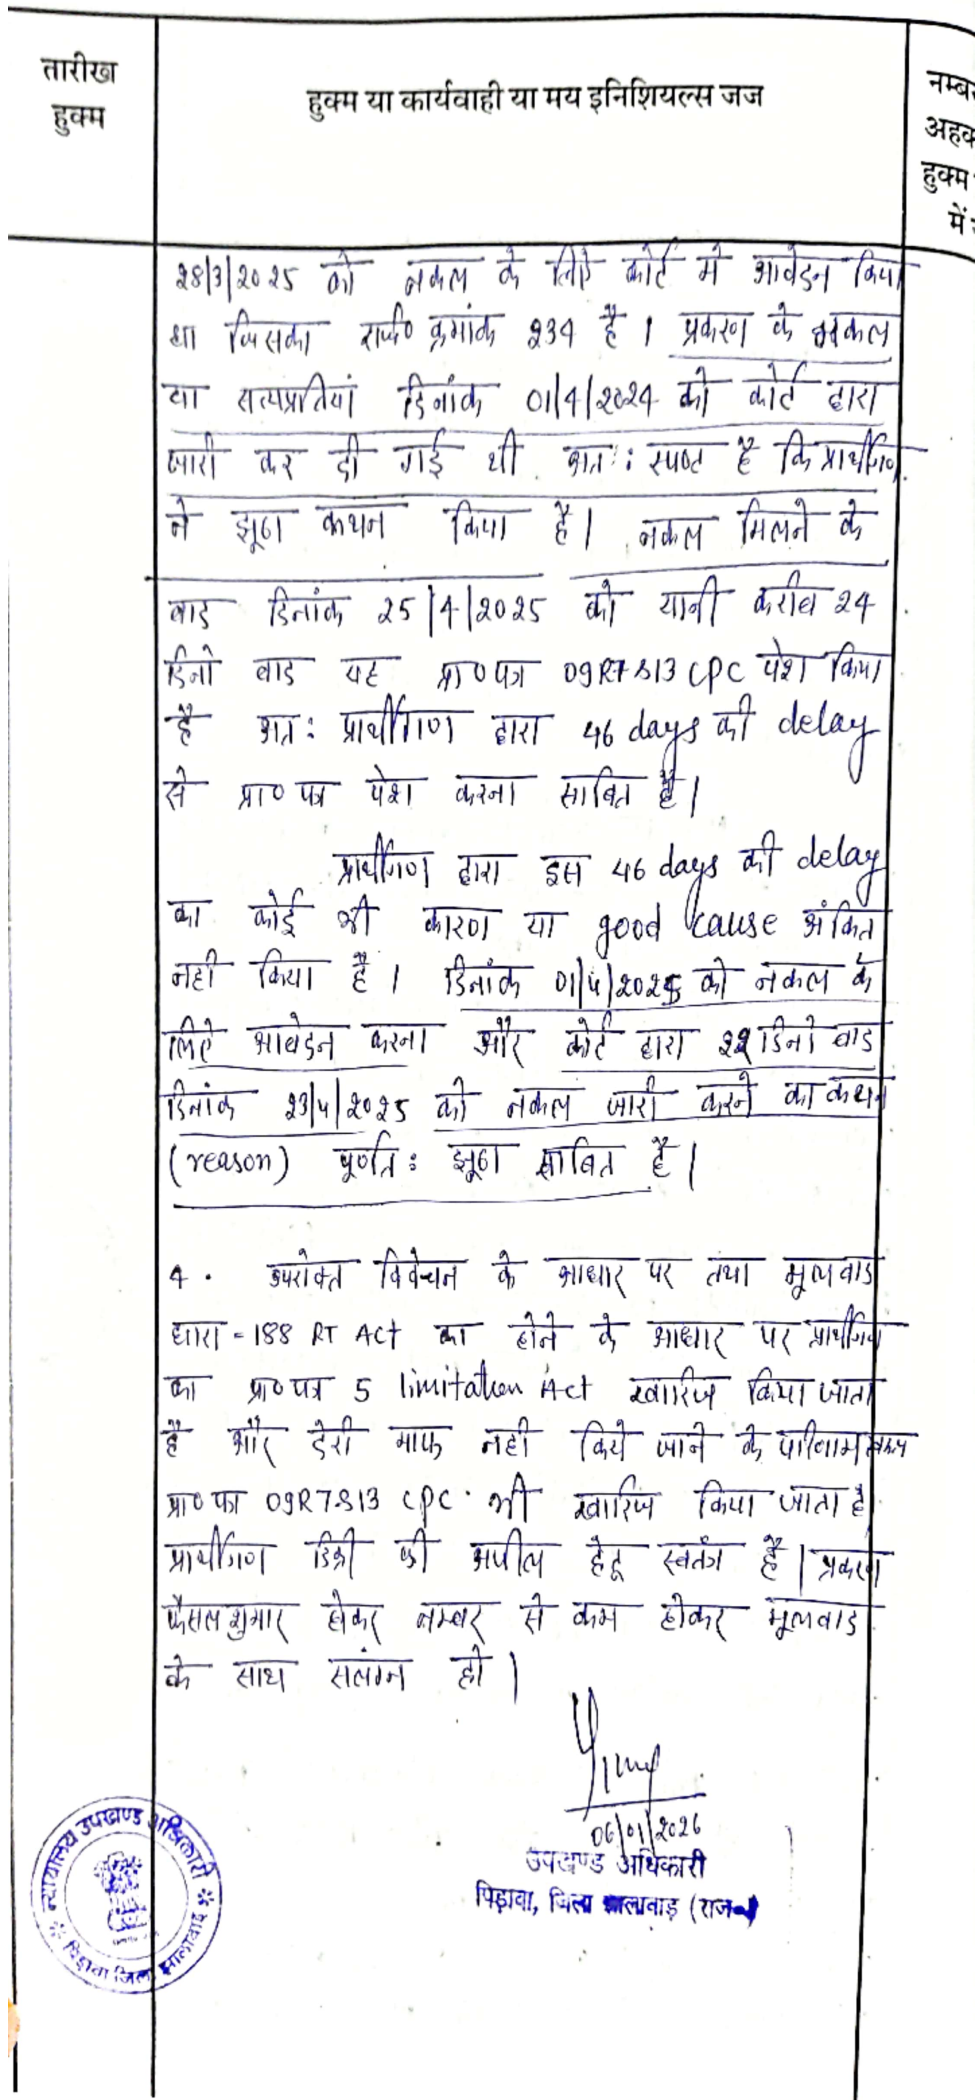 तारीख
हुक्म
हुक्म या कार्यवाही या मय इनिशियल्स जज
नम्बर
अहक
हुक्म
में
28/3/2025 को नकल के लिऐ कोर्ट मे आवेदन किया
था जिसका रजि० क्रमांक 234 है । प्रकरण के नकल
या सत्यप्रतियां दिनांक 01/4/2024 को कोर्ट द्वारा
जारी कर दी गई थी अतः स्पष्ट है कि प्रार्थीगण
ने झूठा कथन किया है। नकल मिलने के
बाद दिनांक 25/4/2025 को यानी करीब 24
दिनो बाद यह प्रा० पत्र 09R7 813 CPC पेश किया
है अतः प्रार्थीगण द्वारा 46 days की delay
से प्रा० पत्र पेश करना साबित है।
प्रार्थीगण द्वारा इस 46 days की delay
का कोई भी कारण या good cause अंकित
नही किया है । दिनांक 01/4/2025 को नकल के
लिऐ आवेदन करना और कोर्ट द्वारा 22 दिनो बाद
दिनांक 23/4/2025 को नकल जारी करने का कथन
(reason) पूर्णतः झूठा साबित है।
4. उपरोक्त विवेचन के आधार पर तथा मूलवाद
धारा-188 RT Act का होने के आधार पर प्रार्थीगण
का प्रा० पत्र 5 limitation Act खारिज किया जाता
है और देरी माफ नही किये जाने के परिणाम स्वरूप
प्रा० पत्र 09R7 813 CPC भी खारिज किया जाता है
प्रार्थीगण डिक्री की अपील हेतू स्वतंत्र है। प्रकरण
फैसल शुमार होकर नम्बर से कम होकर मूलवाद
के साथ सलंग्न हो।
06/01/2026
उपखण्ड अधिकारी
पिड़ावा, जिला झालावाड़ (राज०)
न्यायालय उपखण्ड अधिकारी
पिड़ावा जिला झालावाड़